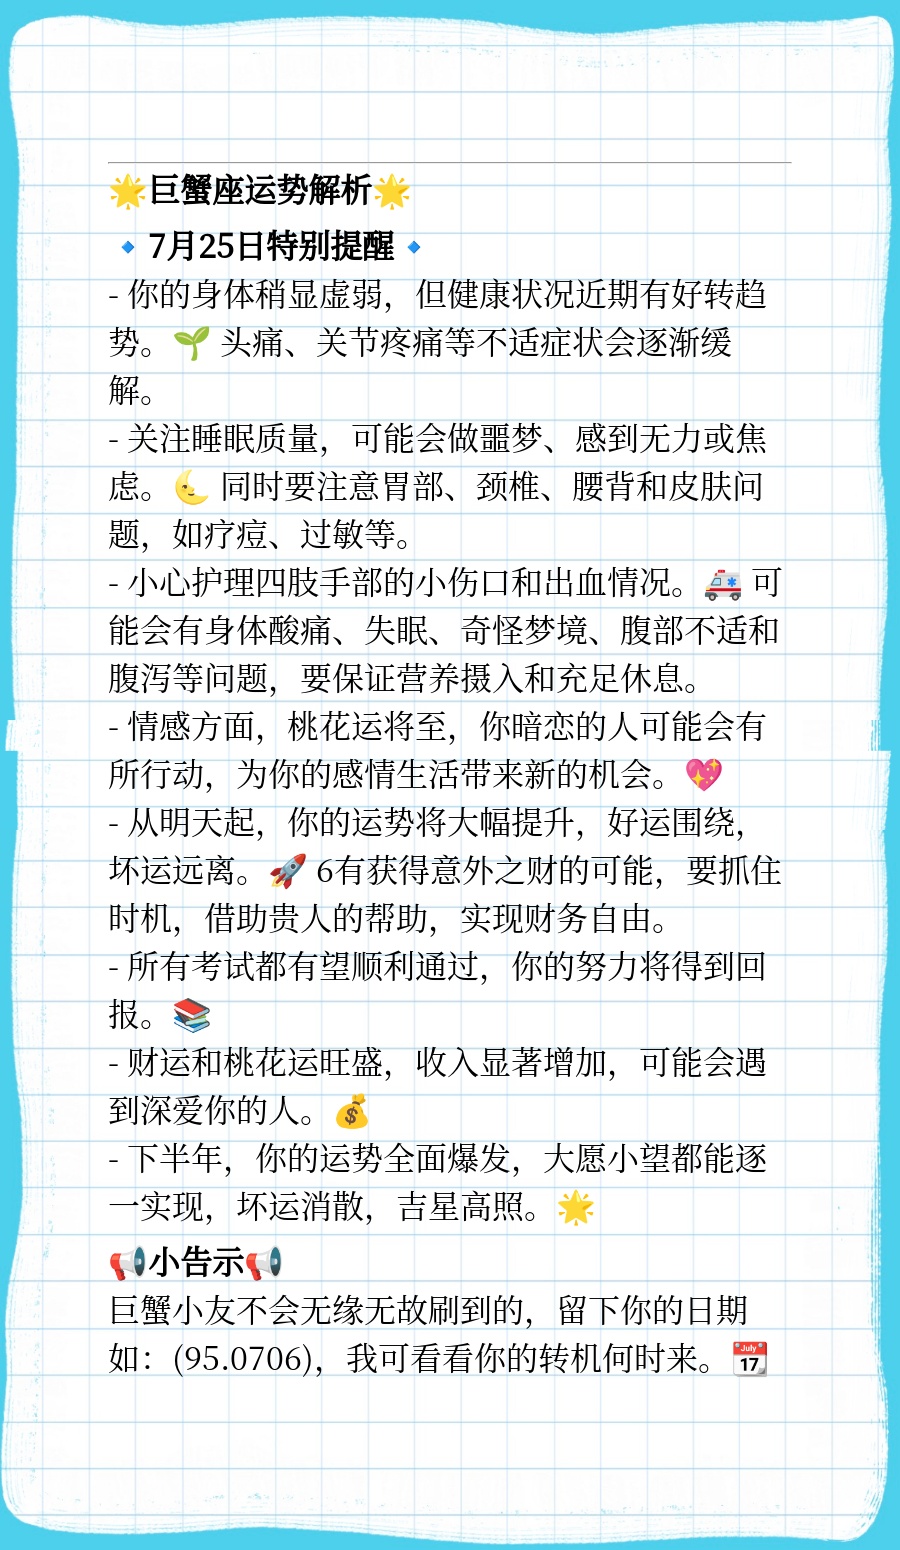 🌟巨蟹座运势解析🌟
🔹7月25日特别提醒🔹
- 你的身体稍显虚弱，但健康状况近期有好转趋
势。🌱 头痛、关节疼痛等不适症状会逐渐缓
解。
- 关注睡眠质量，可能会做噩梦、感到无力或焦
虑。🌜 同时要注意胃部、颈椎、腰背和皮肤问
题，如疗痘、过敏等。
- 小心护理四肢手部的小伤口和出血情况。🚑 可
能会有身体酸痛、失眠、奇怪梦境、腹部不适和
腹泻等问题，要保证营养摄入和充足休息。
- 情感方面，桃花运将至，你暗恋的人可能会有
所行动，为你的感情生活带来新的机会。💖
- 从明天起，你的运势将大幅提升，好运围绕，
坏运远离。🚀 6有获得意外之财的可能，要抓住
时机，借助贵人的帮助，实现财务自由。
- 所有考试都有望顺利通过，你的努力将得到回
报。📚
- 财运和桃花运旺盛，收入显著增加，可能会遇
到深爱你的人。💰
- 下半年，你的运势全面爆发，大愿小望都能逐
一实现，坏运消散，吉星高照。🌟
📢小告示📢
巨蟹小友不会无缘无故刷到的，留下你的日期
如：(95.0706)，我可看看你的转机何时来。📆